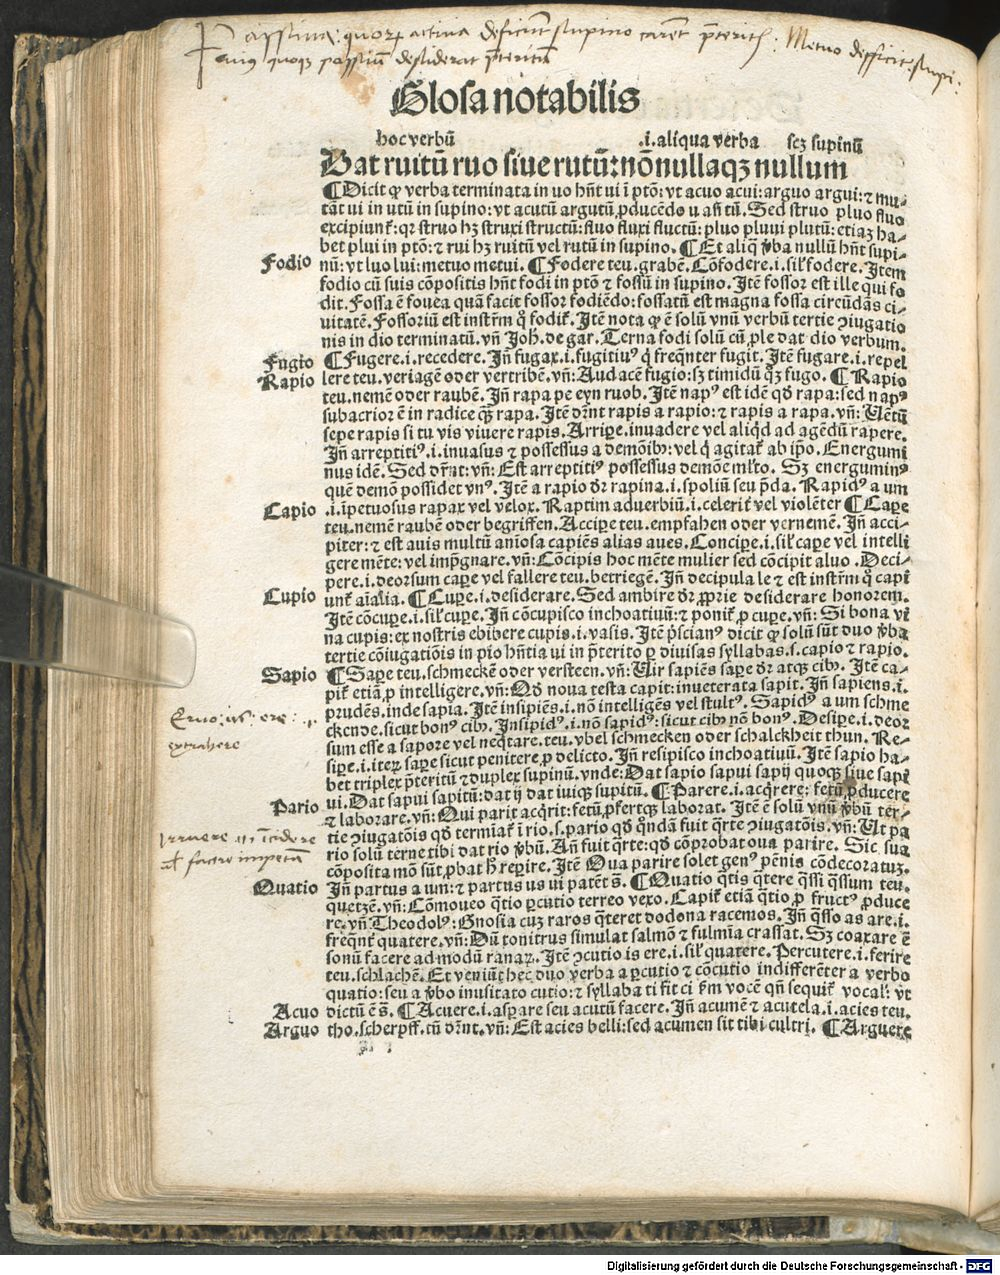 Passiva: quorum activa deficiunt supino carent preteritis: Metuo defficit supi:
Glosa notabilis
hoc verbū .i. aliqua verba scꝫ supinū
Dat ruitū ruo siue rutū: nōnullaqꝫ nullum
¶ Dicit ꝙ verba terminata in uo hn̄t ui i p̄tō: vt acuo acui: arguo argui: ⁊ mu-
tāt ui in utū in supino: vt acutū argutū ꝓducēdo u an̄ tū. Sed struo pluo fluo
excipiunt᷑: qꝛ struo hꝫ struxi structū: fluo fluxi fluctū: pluo pluui plutū: etiaꝫ ha-
bet plui in p̄tō: ⁊ rui hꝫ ruitū vel rutū in supino. ¶ Et aliq̄ v̄ba nullū hn̄t supi-
Fodio nū: vt luo lui: metuo metui. ¶ Fodere teu. grabē. Cōfodere .i. sil᷑ fodere. Item
fodio cū suis cōpositis hn̄t fodi in p̄tō ⁊ fossū in supino. Itē fossor est ille qui fo
dit. Fossa ē fouea quā facit fossor fodiēdo: fossatū est magna fossa circūdās ci-
uitatē. Fossoriū est instr̄m q̊ fodit᷑. Itē nota ꝙ ē solū vnū verbū tertie ꝯiugatio
nis in dio terminatū. vn̄ Joh. de gar. Terna fodi solū cū ꝑle dat dio verbum.
Fugio ¶ Fugere .i. recedere. Jn̄ fugax .i. fugitiuꝰ q̇ freq̄nter fugit. Itē fugare .i. repel
Rapio lere teu. veriagē oder vertribē. vn̄: Audacē fugio: sꝫ timidū q̄ꝫ fugo. ¶ Rapio
teu. nemē oder raubē. Jn̄ rapa pe eyn ruob. Itē napꝰ est idē qd̄ rapa: sed napꝰ
subacrior ē in radice q̄ꝫ rapa. Itē dr̄nt rapis a rapio: ⁊ rapis a rapa. vn̄: Uētū
sepe rapis si tu vis viuere rapis. Arripe. inuadere vel aliqd̄ ad agēdū rapere.
Jn̄ arreptitiꝰ .i. inuasus ⁊ possessus a demōibꝰ: vel q̇ agitat᷑ ab ip̄o. Energumi
nus idē. Sed dr̄nt: vn̄: Est arreptitiꝰ possessus demōe ml̄to. Sꝫ energuminꝰ
quē demō possidet vnꝰ. Itē a rapio dr̄ rapina .i. spoliū seu p̄da. Rapidꝰ a um
Capio .i. īpetuosus rapax vel velox. Raptim aduerbiū .i. celerit᷑ vel violēter ¶ Capere
teu. nemē raubē oder begriffen. Accipe teu. empfahen oder vernemē. Jn̄ acci-
piter: ⁊ est auis multū aīosa capiēs alias aues. Concipe .i. sil᷑ cape vel intelli
gere mēte: vel imp̄gnare. vn̄: Cōcipis hoc mēte mulier sed cōcipit aluo. Deci-
pere .i. deorsum cape vel fallere teu. betriegē. Jn̄ decipula le ⁊ est instr̄m q̊ capi
Cupio unt᷑ aīalia. ¶ Cupe .i. desiderare. Sed ambire dr̄ ꝓprie desiderare honorem.
Itē cōcupe .i. sil᷑ cupe. Jn̄ cōcupisco inchoatiuū: ⁊ ponit᷑ ꝓ cupe. vn̄: Si bona vi
na cupis: ex nostris ebibere cupis .i. vasis. Itē p̄scianꝰ dicit ꝙ solū sūt duo v̄ba
tertie cōiugatiōis in pio hn̄tia ui in p̄terito ꝑ diuisas syllabas .s. capio ⁊ rapio.
Sapio ¶ Sapere teu. schmeckē oder versteen. vn̄: Uir sapiēs sapere dr̄ atqꝫ cibꝰ. Itē ca-
pit᷑ etiā ꝓ intelligere. vn̄: Qd̄ noua testa capit: inueterata sapit. Jn̄ sapiens .i.
prudēs. inde sapia. Itē insipiēs .i. nō intelligēs vel stultꝰ. Sapidꝰ a um schme
ckende. sicut bonꝰ cibꝰ. Insipidꝰ .i. nō sapidꝰ: sicut cibꝰ nō bonꝰ. Desipe .i. deor
sum esse a sapore vel neq̄tare. teu. vbel schmecken oder schalckheit thun. Re-
sipe .i. iteꝝ sapere sicut penitere ꝓ delicto. Jn̄ resipisco inchoatiuū. Itē sapio ha-
bet triplex p̄teritū ⁊ duplex supinū. vnde: Dat sapio sapui sapij quoqꝫ siue sapi
ui. Dat sapui sapitū: dat ij dat iuiqꝫ supitū. ¶ Parere .i. acq̇rere: fetū ꝓducere
Pario ⁊ laborare. vn̄: Qui parit acq̇rit: fetū ꝓfertqꝫ laborat. Itē ē solū vnū v̄bū ter-
tie ꝯiugatōis qd̄ termiat᷑ i rio .s. pario qd̄ q̄ndā fuit q̄rte ꝯiugatōis. vn̄: Ut pa
rio solū terne tibi dat rio v̄bū. An̄ fuit q̄rte: qd̄ cōprobat oua parire. Sic sua
cōposita mō sūt ꝓbat h̄ reperire. Itē Oua parire solet genꝰ pēnis cōdecoratuꝫ.
Quatio Jn̄ partus a um: ⁊ partus us ui patēt s̄. ¶ Quatio q̄tis q̄tere q̄ssi q̄ssum teu.
quetzē. vn̄: Cōmoueo q̄tio ꝑcutio terreo vexo. Capit᷑ etiā q̄tio ꝓ fructꝰ ꝓduce
re. vn̄ Theodolꝰ: Gnosia cuꝫ raros q̄teret dodona racemos. Jn̄ q̄sso as are .i.
freq̄nt᷑ quatere. vn̄: Dū tonitrus simulat salmō ⁊ fulmīa crassat. Sꝫ coaxare ē
sonū facere ad modū ranaꝝ. Itē ꝯcutio is ere .i. sil᷑ quatere. Percutere .i. ferire
teu. schlachē. Et veniūt hec duo verba a ꝑcutio ⁊ cōcutio indifferēter a verbo
quatio: seu a v̄bo inusitato cutio: ⁊ syllaba ti fit ci
Acuo dictū ē s̄. ¶ Acuere .i. asparere seu acutū facere. Jn̄ acumē ⁊ acutela .i. acies teu.
Arguo tho. scherpff. cū dr̄nt. vn̄: Est acies belli: sed acumen sit tibi cultri. ¶ Arguere
Eruo: is: ere:
extrahere
irruere
facere impetū
Digitalisierung gefördert durch die Deutsche Forschungsgemeinschaft - DFG